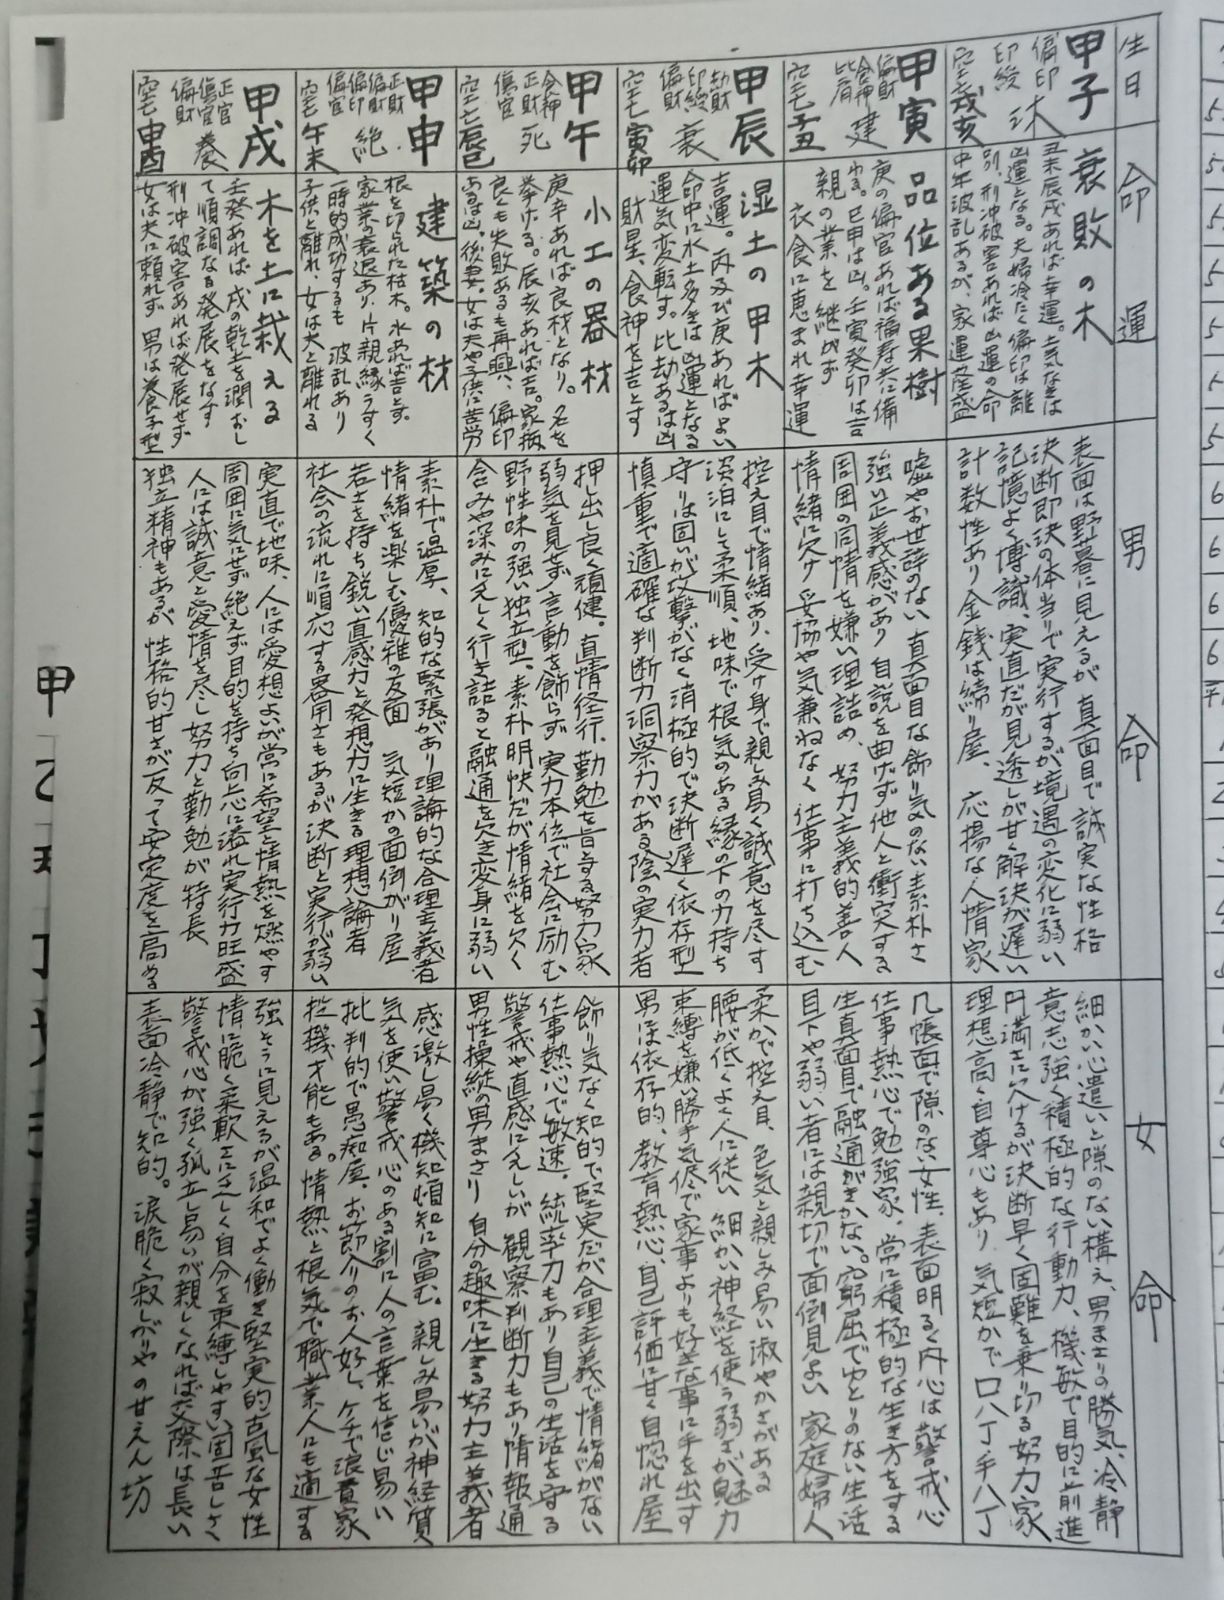 生日
命運
男命
女命
甲子
偏印
印綬
沐
空亡戌亥
衰敗の木
丑未辰戌あれば幸運。土気なきは
凶運となる。夫婦冷たく偏印は離
別、刑冲破害あれば凶運の命
中年波乱あるが、家運隆盛
表面は野暮に見えるが真面目で誠実な性格
決断即決の体当りで実行するが境遇の変化に弱い
記憶よく博識、実直だが見透しが甘く解決が遅い
計数性あり金銭は締り屋、応揚な人情家
細かい心遣いと隙のない構え、男まさりの勝気、冷静
意志強く積極的な行動力、機敏で目的に前進
円満さに欠けるが決断早く困難を乗り切る努力家
理想高く自尊心もあり気短かで口八丁手八丁
甲寅
偏財
食神
比肩
建
空亡子丑
品位ある果樹
庚の偏官あれば福寿共に備
わる。巳申は凶。壬寅癸卯は吉
親の業を継がず
衣食に恵まれ幸運
嘘やお世辞のない真面目な飾り気のない素朴さ
強い正義感があり自説を曲げず他人と衝突する
周囲の同情を嫌い理詰め、努力主義的善人
情緒に欠け妥協や気兼ねなく仕事に打ち込む
几帳面で隙のない女性、表面明るく内心は警戒心
仕事熱心で勉強家、常に積極的な生き方をする
生真面目で融通がきかない。窮屈でゆとりのない生活
目下や弱い者には親切で面倒見よい家庭婦人
甲辰
劫財
印綬
偏財
衰
空亡寅卯
湿土の甲木
吉運。丙及び庚あればよい
命中に水土多きは凶運となる
運気変転す。比劫あるは凶
財星、食神を吉とす
控え目で情緒あり、受け身で親しみ易く誠意を尽す
淡泊にして柔順、地味で根気のある縁の下の力持ち
守りは固いが攻撃がなく消極的で決断遅く依存型
慎重で適確な判断力洞察力がある陰の実力者
柔かで控え目、色気と親しみ易い淑やかさがある
腰が低くよく人に従い細かい神経を使う弱さが魅力
束縛を嫌い勝手気侭で家事よりも好きな事に手を出す
男ほ依存的、教育熱心、自己評価に甘く自惚れ屋
甲午
食神
正財
傷官
死
空亡辰巳
小工の器材
庚辛あれば良材となり。名を
挙げる。辰亥あれば吉。家病
良くも失敗あるも再興、偏印
あるは凶。後妻。女は夫や子供に苦労
押出し良く頑健。直情径行、勤勉を旨とする努力家
弱気を見せず言動を飾らず実力本位で社会に励む
野性味の強い独立型、素朴明快だが情緒を欠く
含みや深みに乏しく行き詰ると融通を欠き変身に弱い
飾り気なく知的で堅実だが合理主義で情緒がない
仕事熱心で敏速。統率力もあり自己の生活を守る
警戒や直感に乏しいが観察判断力もあり情報通
男性操縦の男まさり自分の趣味に生きる努力主義者
甲申
正財
偏財
偏印
偏官
絶
空亡午未
建築の材
根を切られた枯木。水あれば吉とす。
家業の衰退あり、片親縁うすく
一時的成功するも波乱あり
子供と離れ、女は夫と離れる
素朴で温厚、知的な緊張があり理論的な合理主義者
情緒を楽しむ優雅の反面気短かの面倒がり屋
若さを持ち鋭い直感力と発想力に生きる理想論者
社会の流れに順応する器用さもあるが決断と実行が弱い
感激し易く機知頓知に富む。親しみ易いが神経質
気を使い警戒心のある割に人の言葉を信じ易い
批判的で愚痴屋、お節介りのお人好し、ケチで浪費家
投機才能もある。情熱と根気で職業人にも適する
甲戌
正官
傷官
偏財
養
空亡申酉
木を土に栽える
壬癸あれば、戌の乾土を潤おし
て順調なる発展をなす
刑冲破害あれば発展せず
女は夫に頼れず男は養子型
実直で地味、人には愛想よいが常に希望と情熱を燃やす
周囲に気にせず絶えず目的を持ち向上心に溢れ実行力旺盛
人には誠意と愛情を尽し努力と勤勉が特長
独立精神もあるが性格的甘さが反って安定度を高める
強そうに見えるが温和でよく働き堅実的古風な女性
情に脆く柔軟さに乏しく自分を束縛しやすい固苦しさ
警戒心が強く孤立し易いが親しくなれば交際は長い
表面冷静で知的。涙脆く寂しがりやの甘えん坊
甲
乙